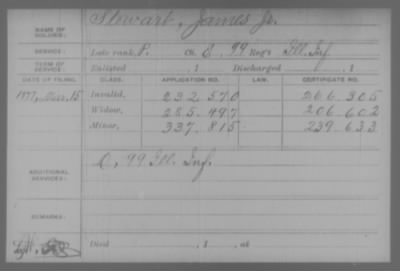 NAME OF SOLDIER: Stewart, James Jr.
SERVICE: Late rank, P. Co. C, 99 Reg't Ill. Inf.
TERM OF SERVICE: Enlisted , 1 Discharged , 1
DATE OF FILING. CLASS. APPLICATION NO. LAW. CERTIFICATE NO.
1877, Mar. 15 Invalid, 232.570 266.305
Widow, 255.497 206.602
Minor, 337.815 239.633
ADDITIONAL SERVICES: C, 99 Ill. Inf.
REMARKS:
Died , 1 , at